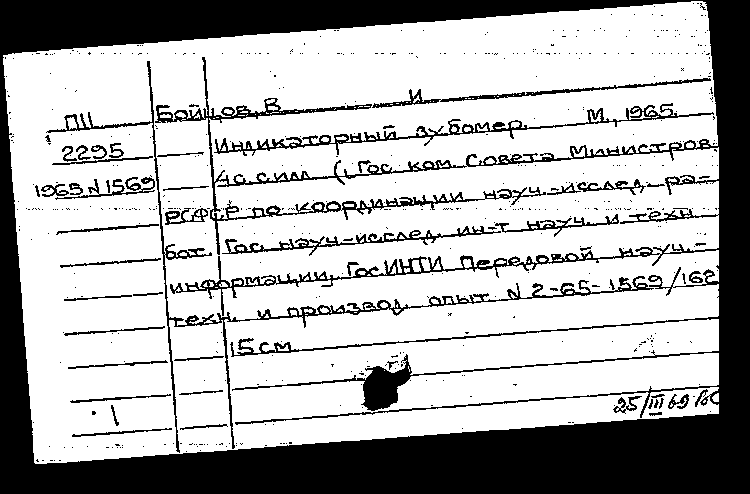 П11 Бойцов, В И
2295 Индикаторный зубомер. М., 1965.
1965 N 1569 4с. с илл. (Гос. ком. Совета Министров
РСФСР по координации науч.-исслед. ра-
бот. Гос. науч-исслед. ин-т науч. и техн.
информации, ГосИНТИ Передовой науч.-
техн. и производ. опыт. N 2-65-1569/162
15 см.
1
25/III 69